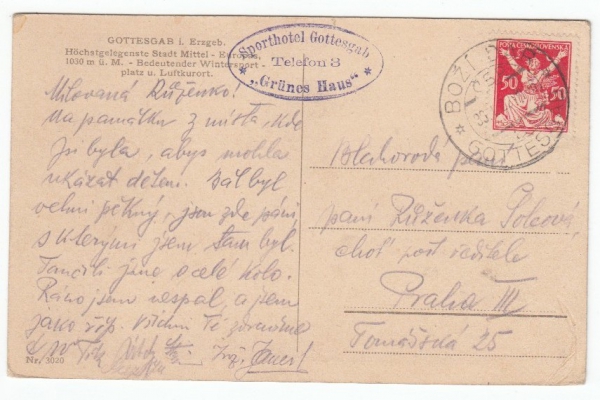 GOTTESGAB i. Erzgeb.
Höchstgelegenste Stadt Mittel - Europas,
1030 m ü. M. - Bedeutender Wintersport-
platz u. Luftkurort.
Sporthotel Gottesgab
Telefon 3
„Grünes Haus“
POŠTA ČESKOSLOVENSKÁ
50 50
BOŽÍ
GOTTES
Milovaná Růženko!
Na památku z místa, kde
jsi byla, abys mohla
ukázat dětem. Bál byl
velmi pěkný, jsou zde páni,
s kterými jsem tam byl.
Tančili jsme celé kolo.
Ráno jsem nespal, a jsem
jako ryb. Všichni Tě zdravíme
Blahorodá paní
paní Růženka
choť pošt ředitele
Praha III
Tomášská 25
Nr. 3020